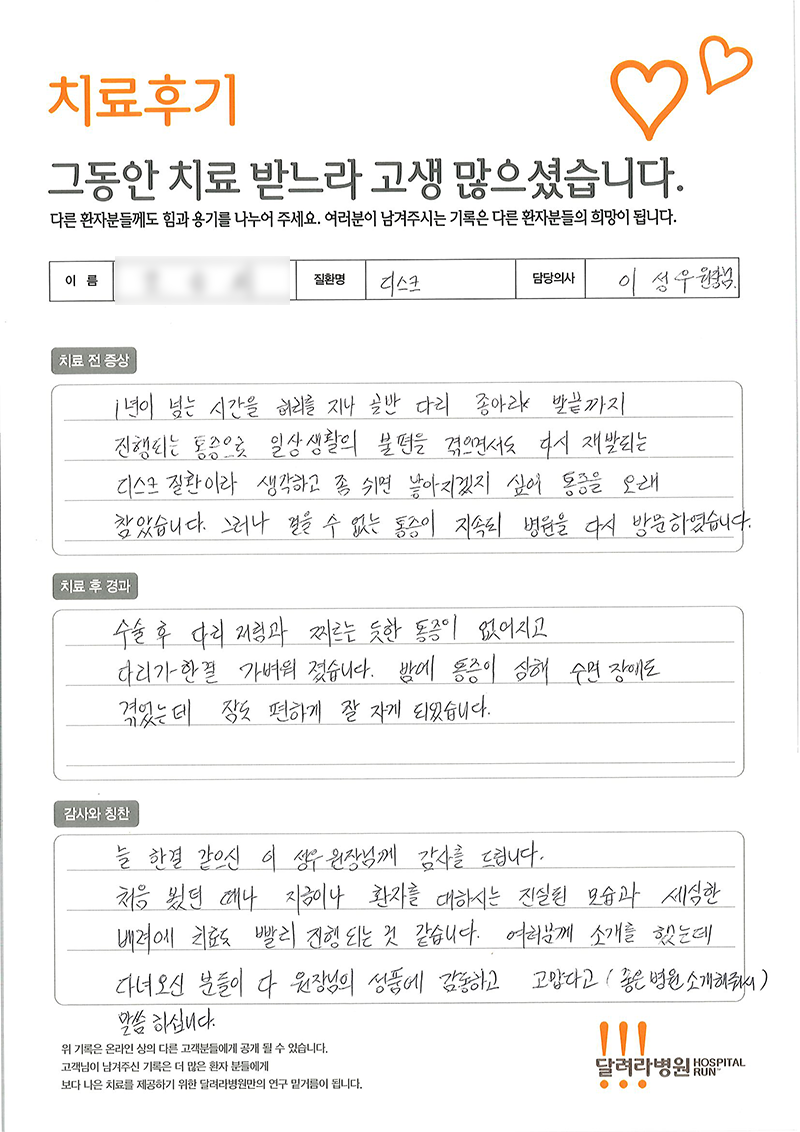 치료후기
그동안 치료 받느라 고생 많으셨습니다.
다른 환자분들께도 힘과 용기를 나누어 주세요. 여러분이 남겨주시는 기록은 다른 환자분들의 희망이 됩니다.
이 름 질환명 디스크 담당의사 이 성우 원장님.
치료 전 증상
1년이 넘는 시간을 허리를 지나 골반 다리 종아리 발끝까지
진행되는 통증으로 일상생활의 불편을 겪으면서도 다시 재발되는
디스크 질환이라 생각하고 좀 쉬면 낳아지겠지 싶어 통증을 오래
참았습니다. 그러나 걸을 수 없는 통증이 지속되 병원을 다시 방문하였습니다.
치료 후 경과
수술 후 다리 저림과 찌르는 듯한 통증이 없어지고
다리가 한결 가벼워 졌습니다. 밤에 통증이 심해 수면 장애도
겪었는데 잠도 편하게 잘 자게 되었습니다.
감사와 칭찬
늘 한결 같으신 이 성우 원장님께 감사를 드립니다.
처음 뵀던 때나 지금이나 환자를 대하시는 진실된 모습과 세심한
배려에 치료도 빨리 진행 되는 것 같습니다. 여러분께 소개를 했는데
다녀오신 분들이 다 원장님의 성품에 감동하고 고맙다고 (좋은 병원 소개해줘서)
말씀 하십니다.
위 기록은 온라인 상의 다른 고객분들에게 공개 될 수 있습니다.
고객님이 남겨주신 기록은 더 많은 환자 분들에게
보다 나은 치료를 제공하기 위한 달려라병원만의 연구 밑거름이 됩니다.
달려라병원 HOSPITAL RUN